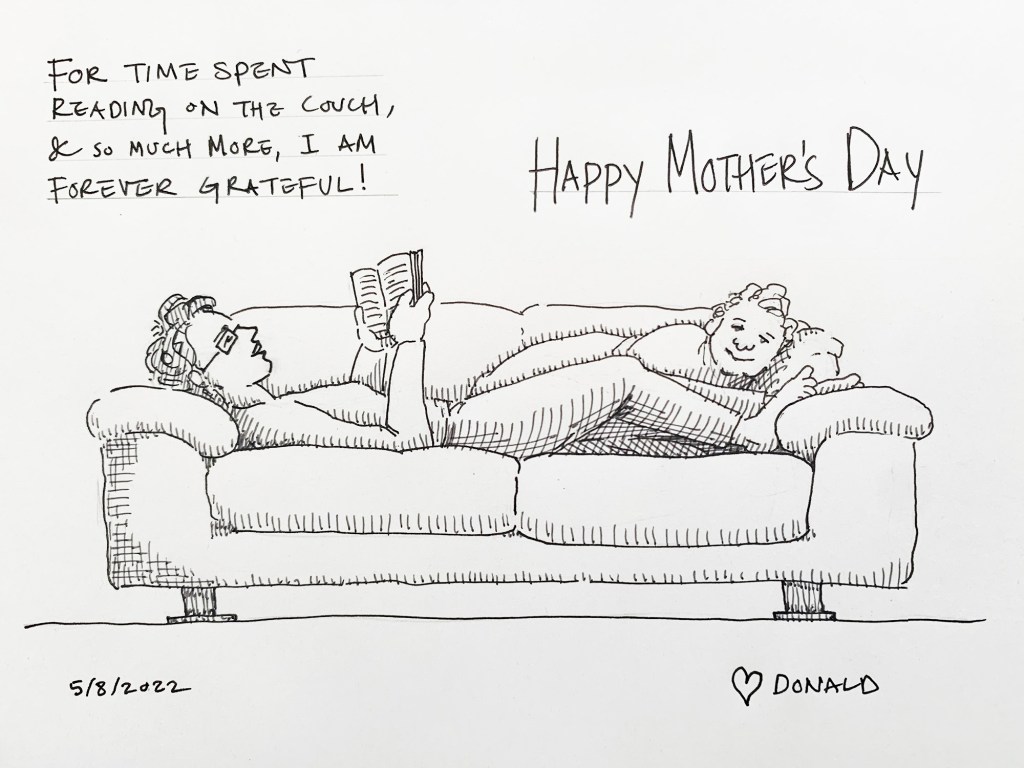 FOR TIME SPENT
READING ON THE COUCH,
& SO MUCH MORE, I AM
FOREVER GRATEFUL!
HAPPY MOTHER'S DAY
5/8/2022
♡ DONALD